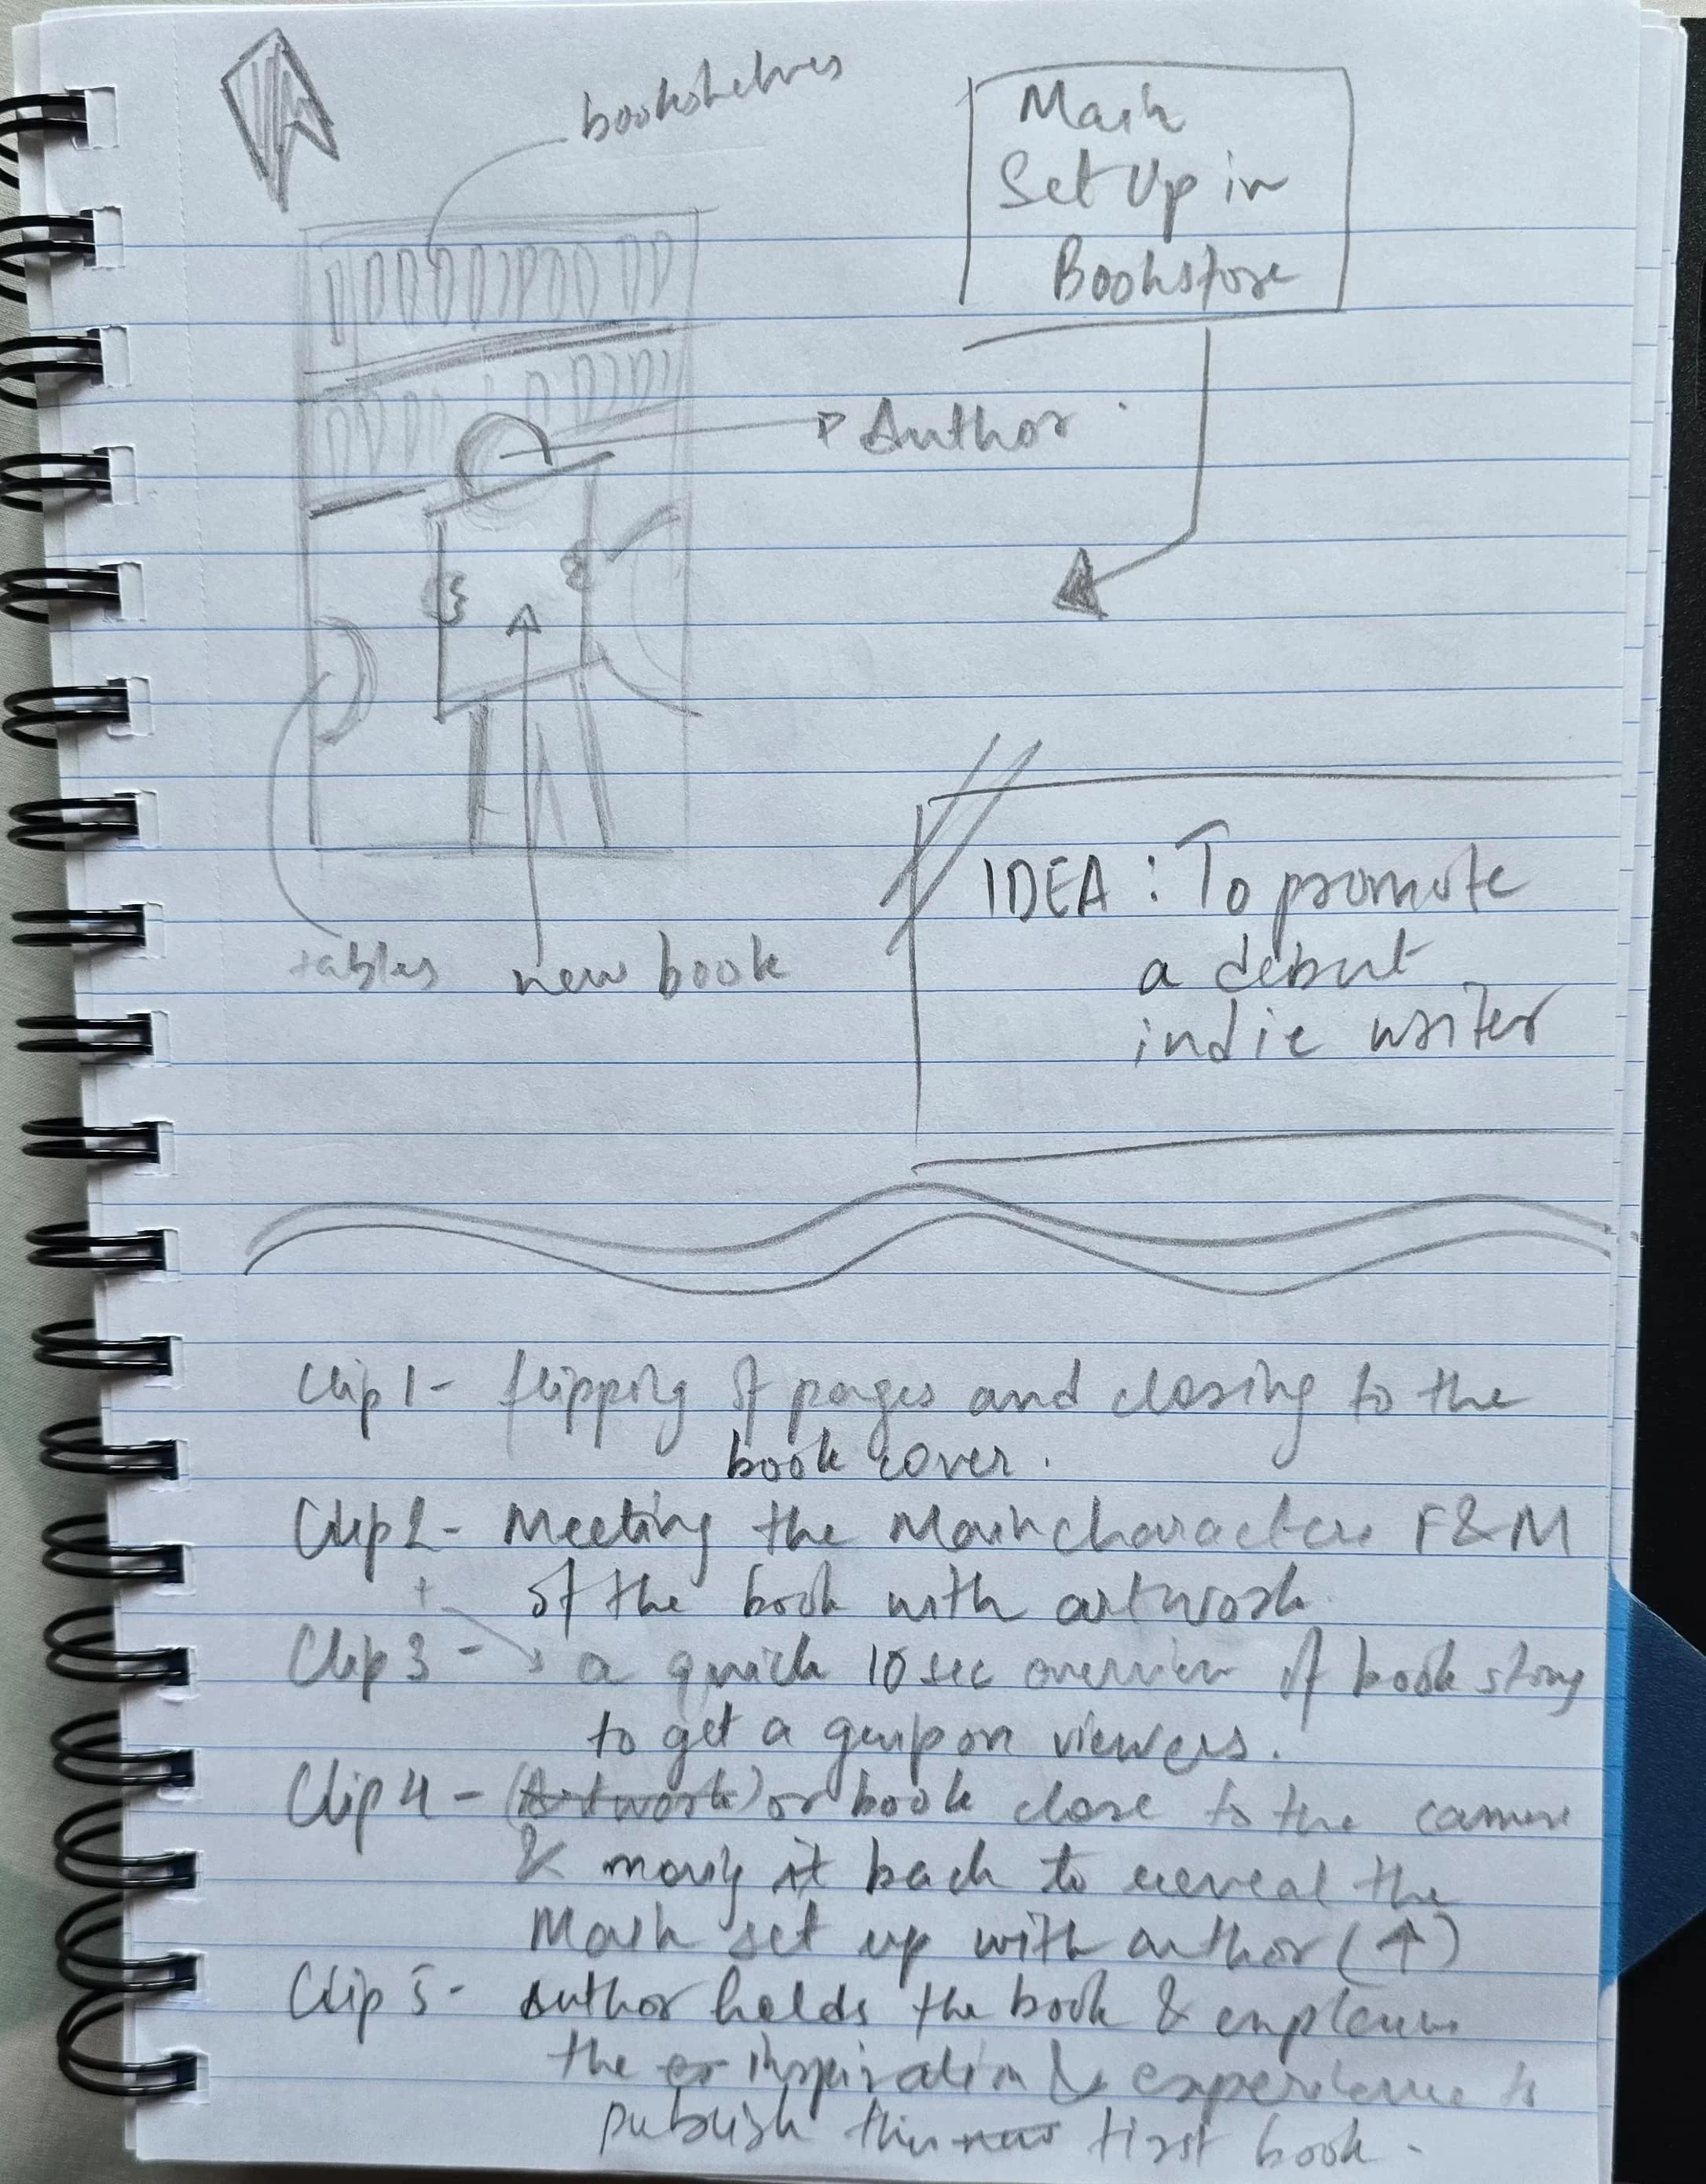 bookshelves
Main
Set Up in
Bookstore
Author
IDEA : To promote
a debut
indie writer
tables new book
Clip 1 - flipping of pages and closing to the
book cover.
Clip 2 - Meeting the Main characters F & M
of the book with artwork.
+
Clip 3 - a quick 10 sec overview of book story
to get a grip on viewers.
Clip 4 - (Artwork) or book close to the camera
& moving it back to reveal the
Main set up with author (↑)
Clip 5 - Author holds the book & explains
the inspiration & experience to
publish first book.